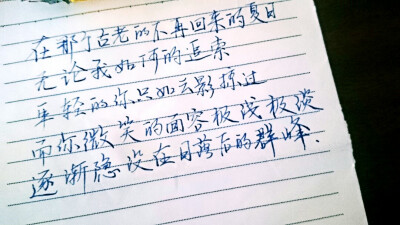 在那个古老的不再回来的夏日
无论我如何的追索
年轻的你只如云影掠过
而你微笑的面容极浅极淡
逐渐隐没在日落后的群峰.